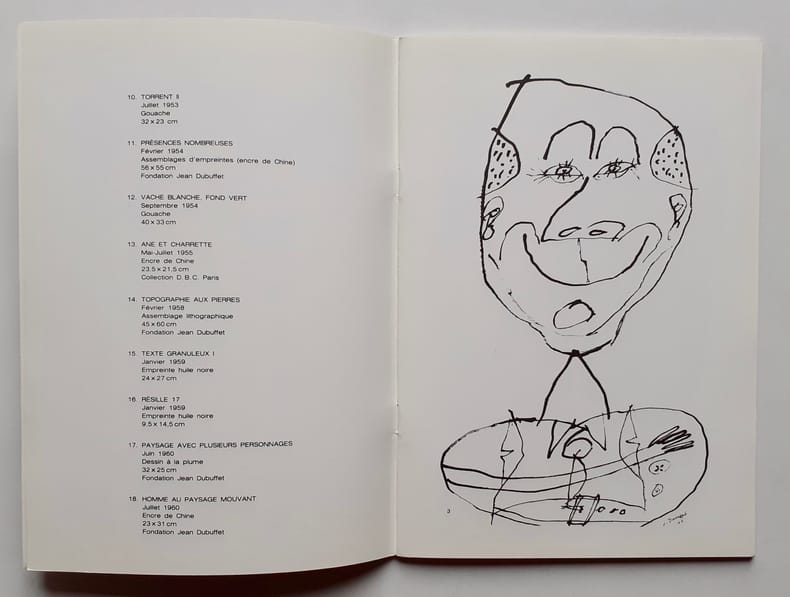 10. TORRENT II
Juillet 1953
Gouache
32 x 23 cm
11. PRÉSENCES NOMBREUSES
Février 1954
Assemblages d'empreintes (encre de Chine)
56 x 55 cm
Fondation Jean Dubuffet
12. VACHE BLANCHE, FOND VERT
Septembre 1954
Gouache
40 x 33 cm
13. ANE ET CHARRETTE
Mai-Juillet 1955
Encre de Chine
23,5 x 21,5 cm
Collection D.B.C. Paris
14. TOPOGRAPHIE AUX PIERRES
Février 1958
Assemblage lithographique
45 x 60 cm
Fondation Jean Dubuffet
15. TEXTE GRANULEUX I
Janvier 1959
Empreinte huile noire
24 x 27 cm
16. RÉSILLE 17
Janvier 1959
Empreinte huile noire
9,5 x 14,5 cm
17. PAYSAGE AVEC PLUSIEURS PERSONNAGES
Juin 1960
Dessin à la plume
32 x 25 cm
Fondation Jean Dubuffet
18. HOMME AU PAYSAGE MOUVANT
Juillet 1960
Encre de Chine
23 x 31 cm
Fondation Jean Dubuffet
3